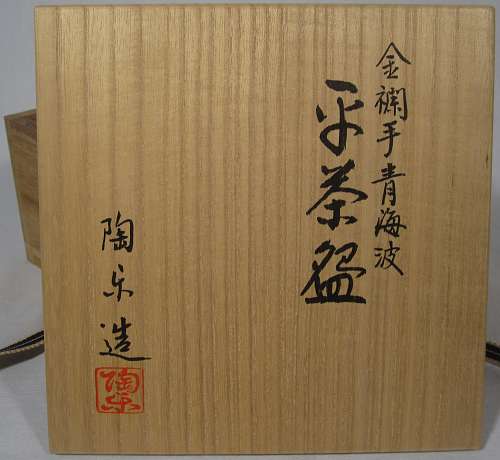 金襴手青海波
平茶盌
陶楽造
陶楽